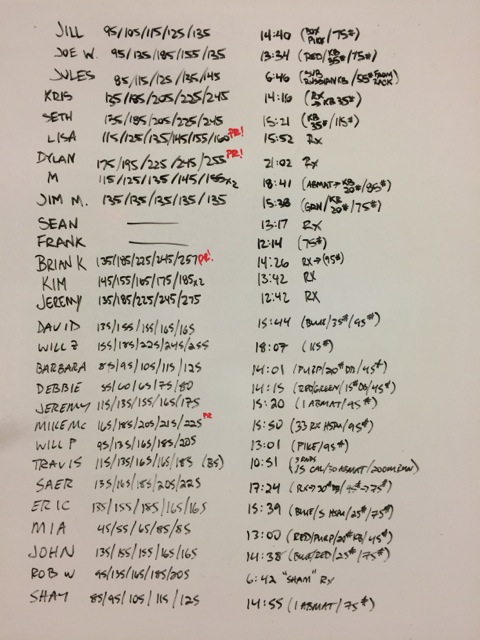 JILL 95/105/115/125/135 14:40 (BOX PIKE/75#)
JOE W. 95/135/185/155/135 13:34 (RED/KB 35#/75#)
JULES 85/115/125/135/145 6:46 (SUB RUSSIAN KB/55# FROM RACK)
KRIS 135/185/205/225/245 14:16 (RX → KB 35#)
SETH 135/185/205/225/245 15:21 (KB 35#/115#)
LISA 115/125/135/145/155/160 PR! 15:52 RX
DYLAN 175/195/225/245/255 PR! 21:02 RX
M 115/125/135/145/155x2 18:41 (ABMAT → KB 20#/85#)
JIM M. 135/135/135/135/135 15:38 (GRN/KB 20#/75#)
SEAN —— 13:17 RX
FRANK —— 12:14 (75#)
BRIAN K 135/185/225/245/257 PR! 14:26 RX → (95#)
KIM 145/155/165/175/185x2 13:42 RX
JEREMY 135/185/225/245/275 12:42 RX
DAVID 135/155/155/165/165 15:44 (BLUE/35#/95#)
WILL Z 155/185/225/245/255 18:07 (115#)
BARBARA 85/95/105/115/125 14:01 (PURP/20# DB/45#)
DEBBIE 55/60/65/75/80 14:15 (RED/GREEN/15# DB/45#)
JEREMY 115/135/155/165/175 15:20 (1 ABMAT/95#)
MIKE MC 165/185/205/215/225 PR 15:50 (33 RX HSPU/95#)
WILL P 95/135/165/185/205 13:01 (PIKE/95#)
TRAVIS 115/135/165/165/185 (BS) 10:51 (3 RNDS 15 CAL/30 ABMAT/200M ROW)
SAER 135/165/185/205/225 17:24 (RX → 30# DB/95# → 75#)
ERIC 135/155/185/165/165 15:39 (BLUE/5 HSPU/25#/75#)
MIA 45/55/65/85/85 13:00 (RED/PURP/20# KB/45#)
JOHN 135/155/155/165/165 14:38 (BLUE/RED/25#/75#)
ROB W 95/135/165/185/205 6:42 "SHAM" RX
SHAY 85/95/105/115/125 14:55 (1 ABMAT/75#)